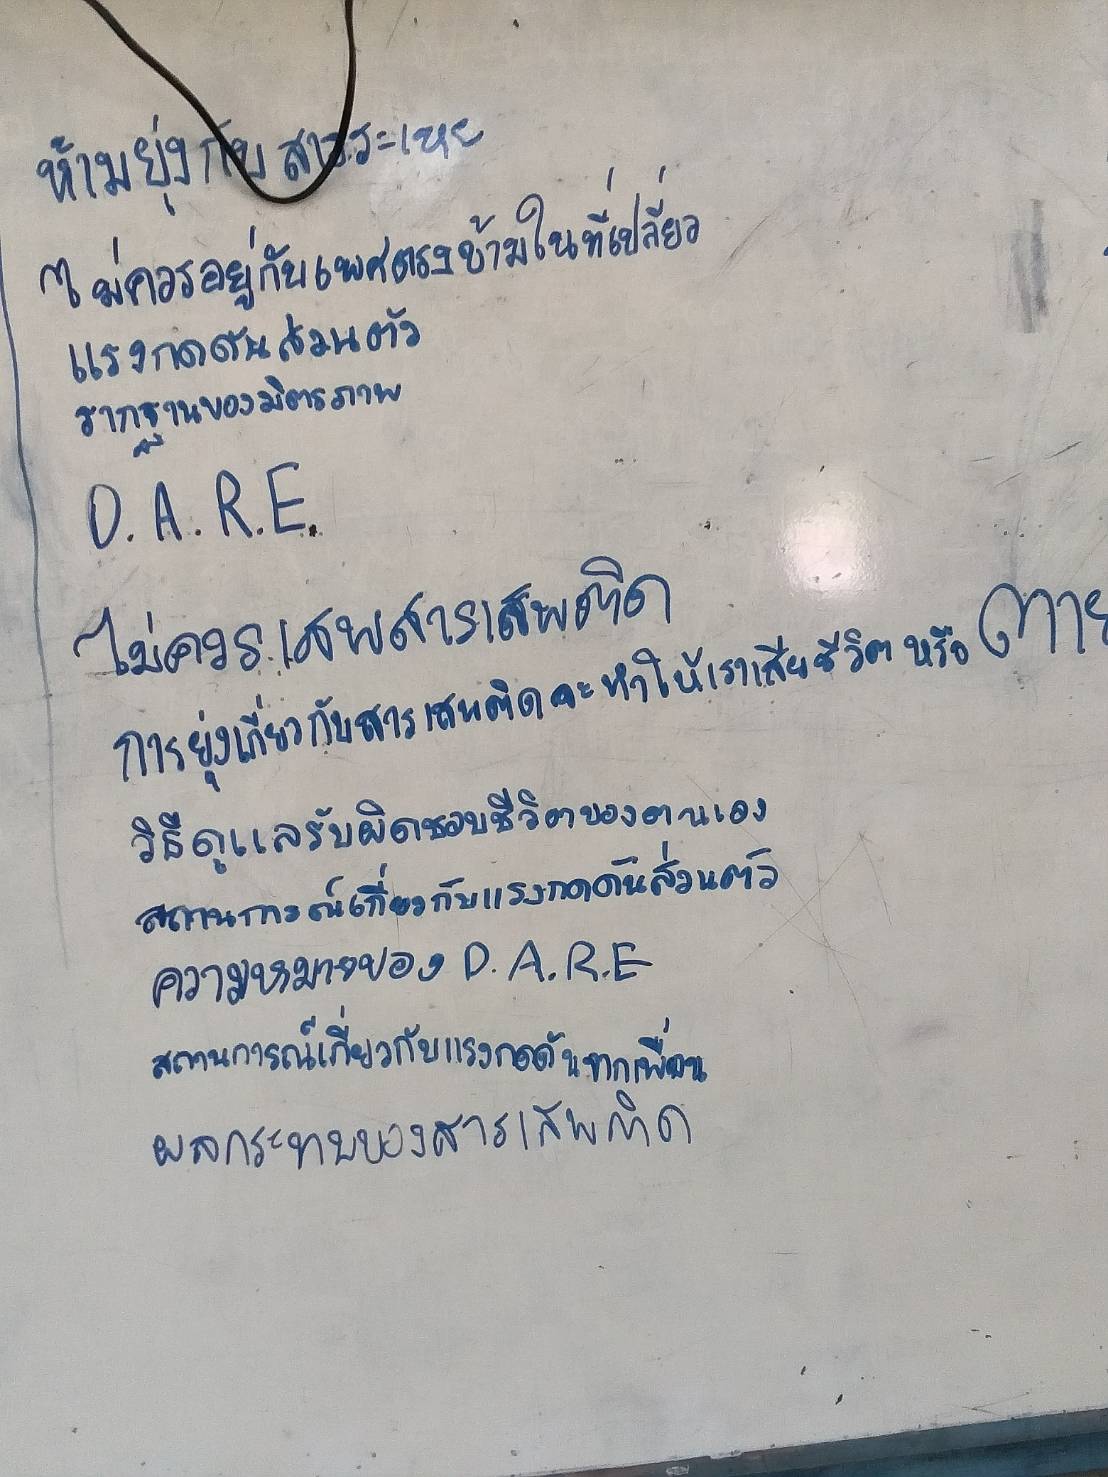 ห้ามยุ่งกับสารระเหย
ไม่ควรอยู่กับเพศตรงข้ามในที่เปลี่ยว
แรงกดดันส่วนตัว
รากฐานของมิตรภาพ
D.A.R.E.
ไม่ควรเสพสารเสพติด
การยุ่งเกี่ยวกับสารเสพติดจะทำให้เราเสียชีวิตหรือ ตาย
วิธีดูแลรับผิดชอบชีวิตของตนเอง
สถานการณ์เกี่ยวกับแรงกดดันส่วนตัว
ความหมายของ D.A.R.E
สถานการณ์เกี่ยวกับแรงกดดันจากเพื่อน
ผลกระทบของสารเสพติด